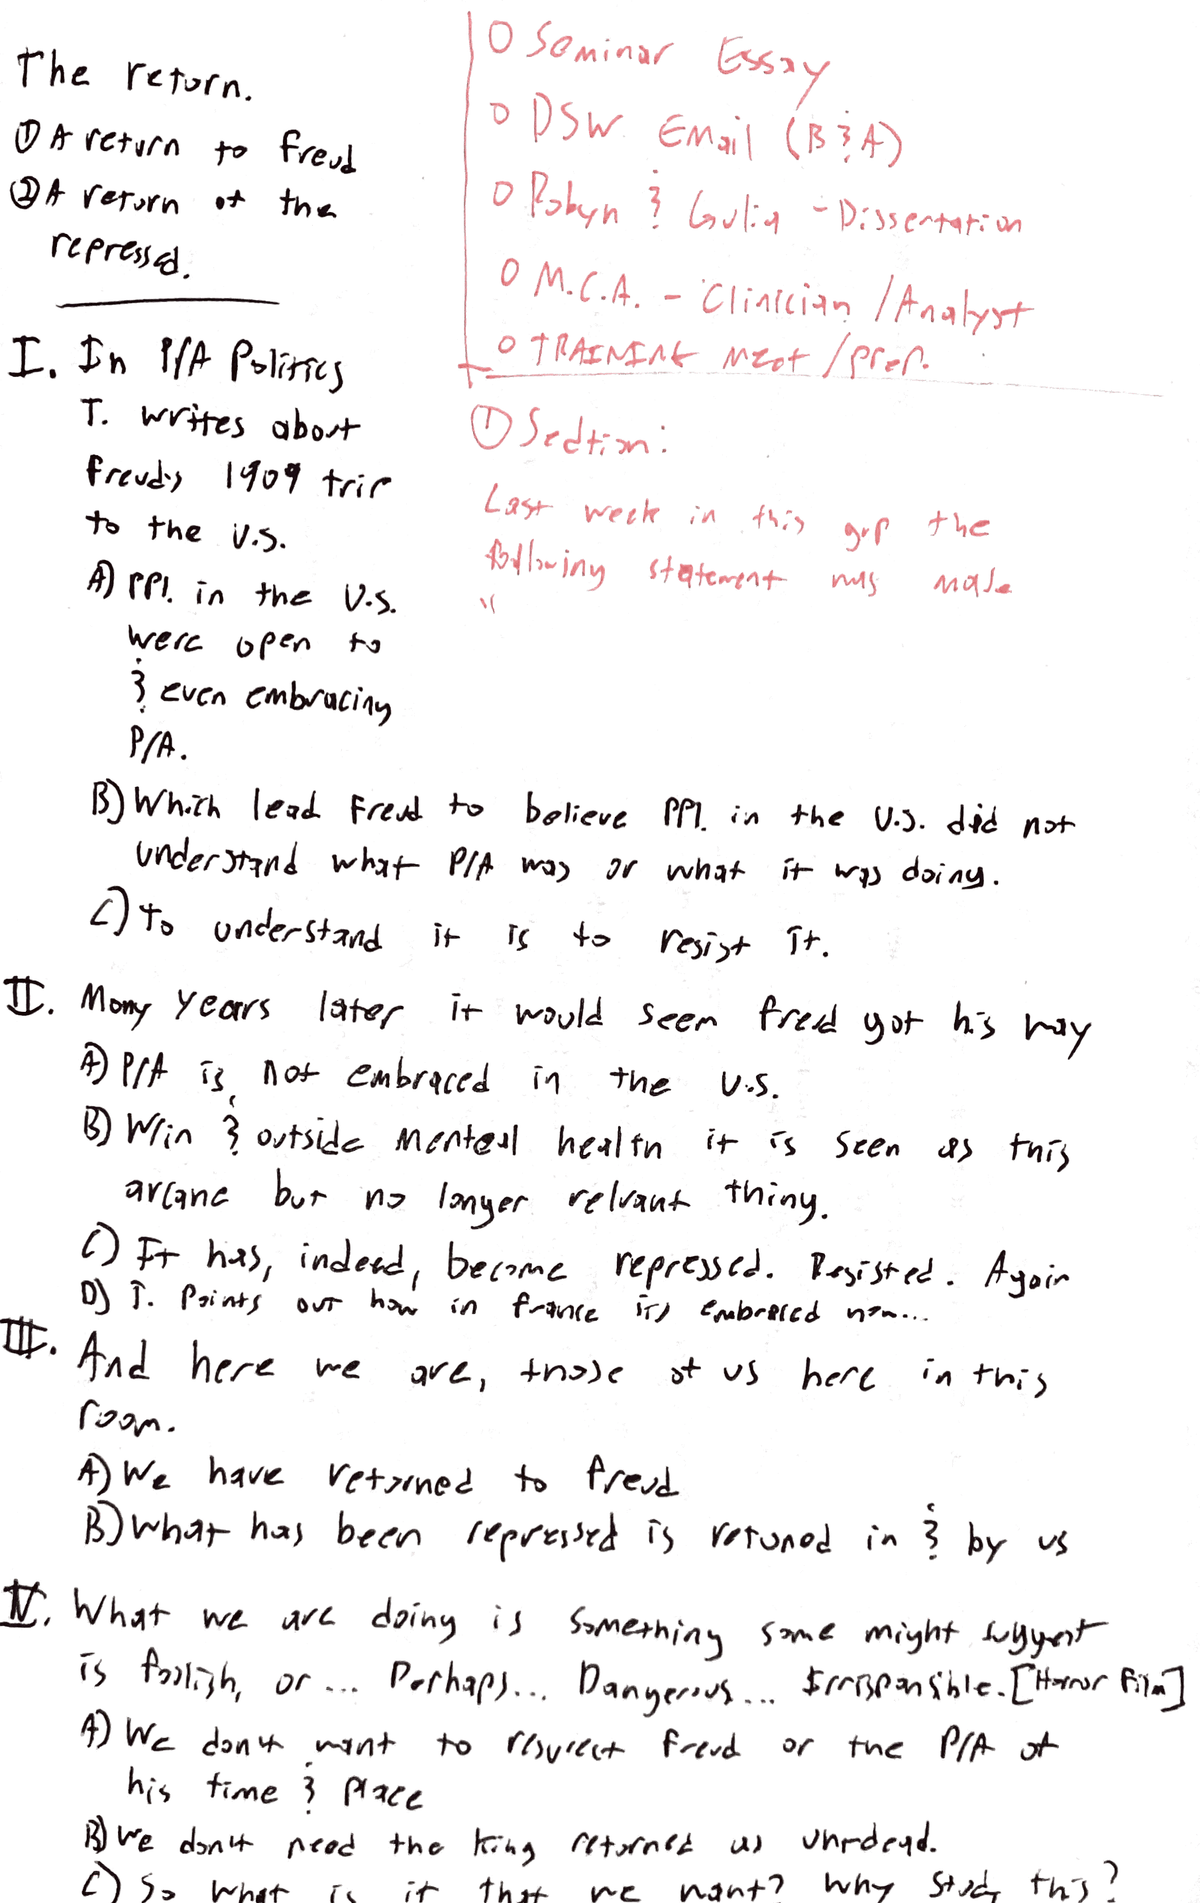 The return.
① A return to freud
② A return of the
repressed.
I. In P/A Politics
T. writes about
freud's 1909 trip
to the U.S.
A) PPl. in the U.S.
were open to
& even embracing
P/A.
B) Which lead Freud to believe PPl. in the U.S. did not
understand what P/A was or what it was doing.
C) to understand it is to resist it.
II. Many years later it would seem freud got his way
A) P/A is not embraced in the U.S.
B) W/in & outside mental health it is seen as this
arcane but no longer relvant thing.
C) It has, indeed, become repressed. Resisted. Again
D) T. Points out how in france its embraced now...
III. And here we are, those of us here in this
room.
A) We have returned to freud
B) What has been repressed is retuned in & by us
IV. What we are doing is something some might suggest
is foolish, or ... Perhaps... Dangerous... Irresponsible. [Horror Film]
A) We don't want to resurect freud or the P/A of
his time & place
B) We don't need the king returned as un-dead.
C) So what is it that we want? Why study this?
o Seminar Essay
o DSW Email (B & A)
o Robyn & Gulia - Dissertation
o M.C.A. - Clinician / Analyst
o TRAINING meet / prep.
① Section:
Last week in this grp the
following statement was made
"